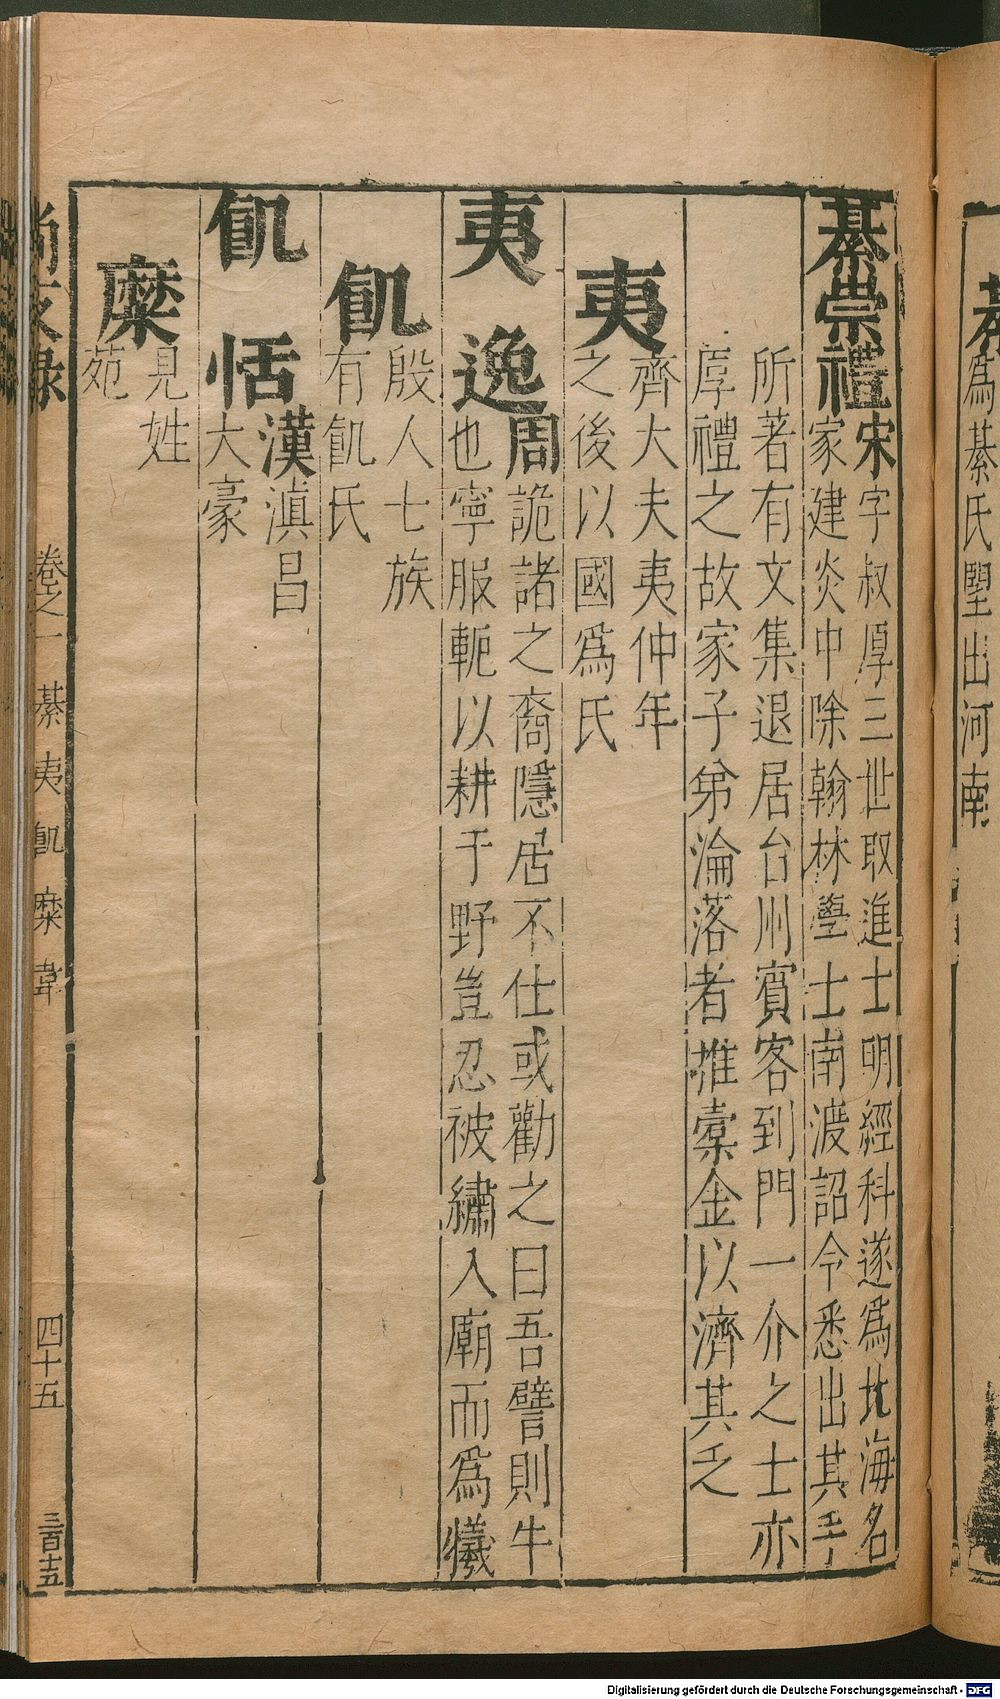 爲綦氏望出河南
綦崇禮宋字叔厚三世取進士明經科遂爲北海名
家建炎中除翰林學士南渡詔令悉出其手
所著有文集退居台州賓客到門一介之士亦
厚禮之故家子弟淪落者推橐金以濟其乏
夷
齊大夫夷仲年
之後以國爲氏
夷逸周詭諸之裔隱居不仕或勸之曰吾譬則牛
也寧服軛以耕于野豈忍被繡入廟而爲犧
飢
殷人七族
有飢氏
飢恬漢滇昌
大豪
糜
見姓
苑
尚友錄
卷之一 綦夷飢糜韋
四十五
三百十五
Digitalisierung gefördert durch die Deutsche Forschungsgemeinschaft - DFG